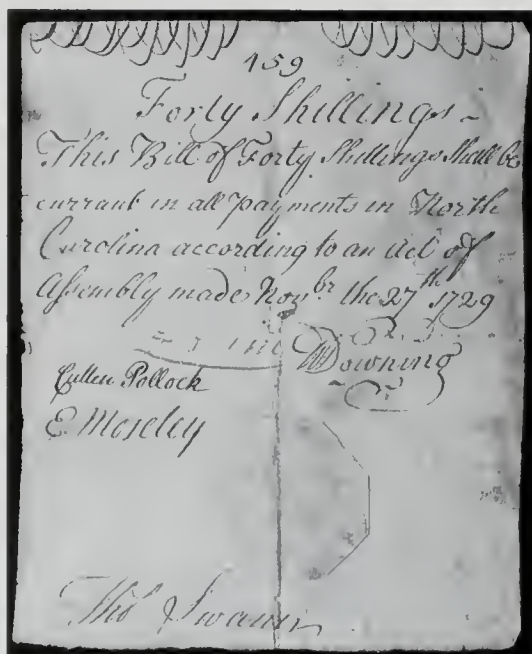 459
Forty Shillings
This Bill of Forty Shillings Shall be
currant in all payments in North
Carolina according to an Act of
Assembly made Novbr the 27th 1729
W Downing
Cullen Pollock
E Moseley
Tho Swann